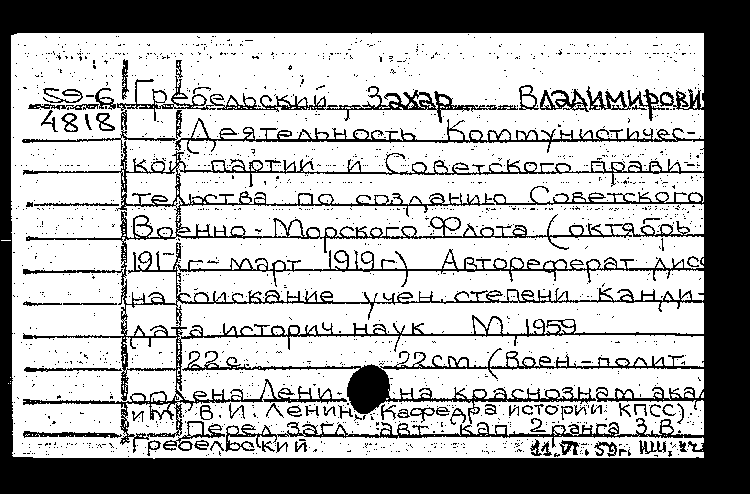 59-6 Гребельский, Захар Владимирови
4818 Деятельность Коммунистичес-
кой партии и Советского прави-
тельства по созданию Советского
Военно-Морского Флота (октябрь
1917 г.- март 1919 г.) Автореферат дисс
на соискание учен. степени канди-
дата историч. наук М., 1959
22 с. 22 см. (Воен.-полит.
ордена Лени на краснознам ака
им. В.И. Ленина Кафедра истории КПСС).
Перед загл. авт.: кап. 2 ранга З.В.
Гребельский. 11.VI.59г.